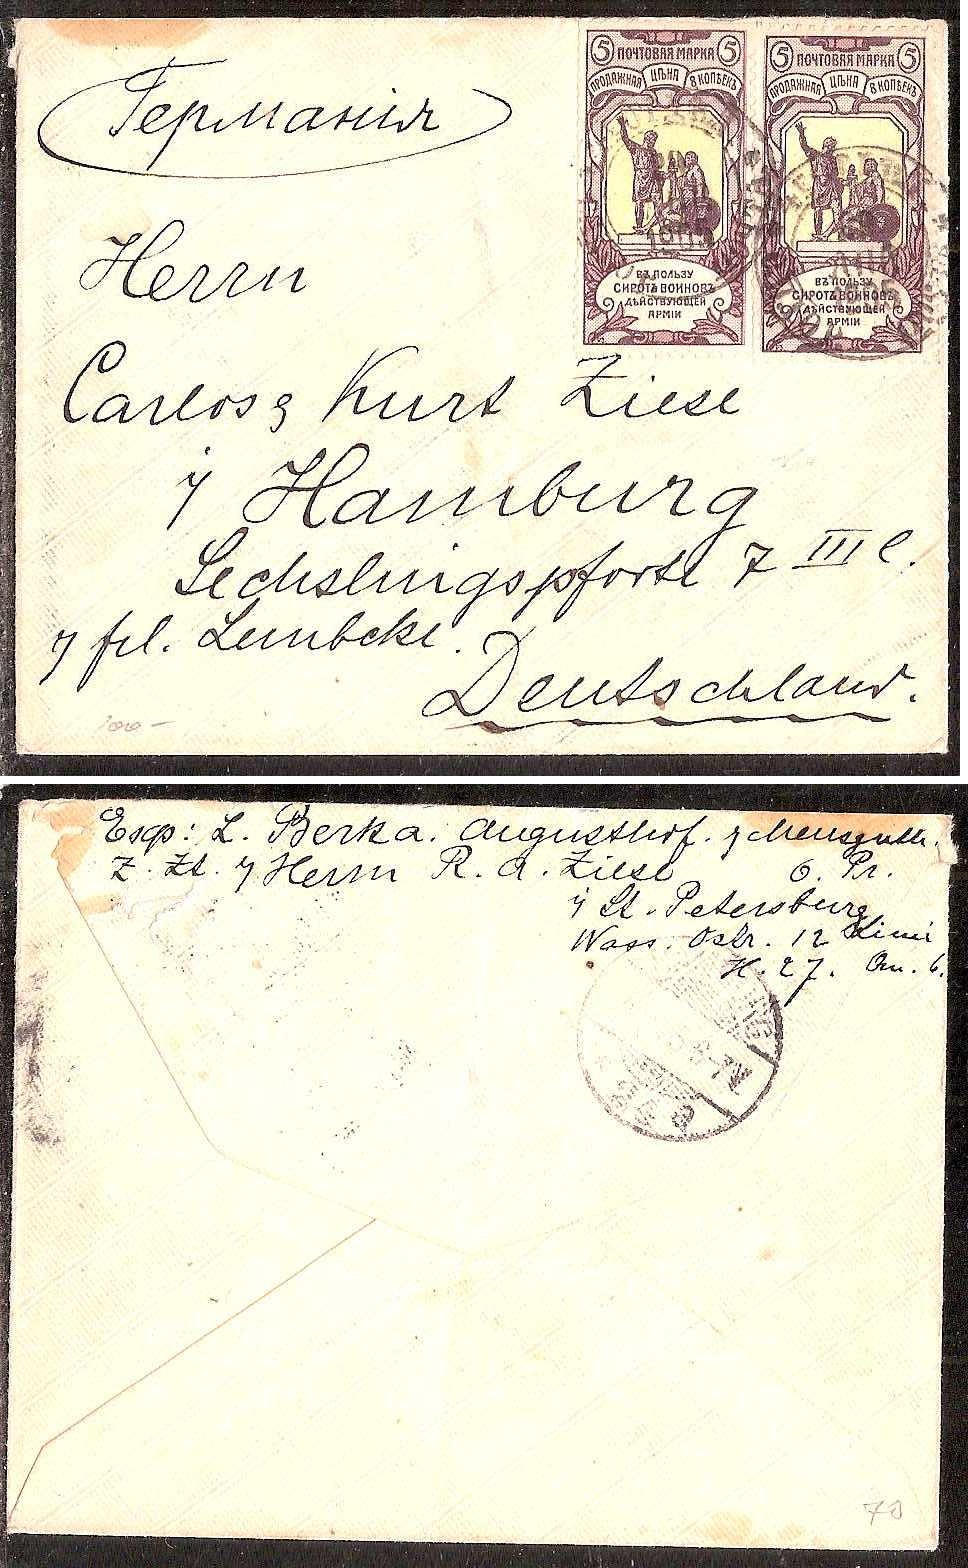 Германія
5 ПОЧТОВАЯ МАРКА 5
ПРОДАЖНАЯ ЦѢНА 5 КОПѢЕКЪ
ВЪ ПОЛЬЗУ
СИРОТЪ ВОИНОВЪ
ДѢЙСТВУЮЩЕЙ
АРМІИ
5 ПОЧТОВАЯ МАРКА 5
ПРОДАЖНАЯ ЦѢНА 8 КОПѢЕКЪ
ВЪ ПОЛЬЗУ
СИРОТЪ ВОИНОВЪ
ДѢЙСТВУЮЩЕЙ
АРМІИ
Herrn
Carlos & Kurt Ziese
Hamburg
Sechslingspforte 7 III e.
frl. Lembcke.
Deutschland.
100 –
Exp: L. Berka. Augusthof.
z. Zt. Herrn R. A. Ziese O. Pr.
St. Petersburg
Wass. Ostr. 12 Linie
H. 27. 6.
70